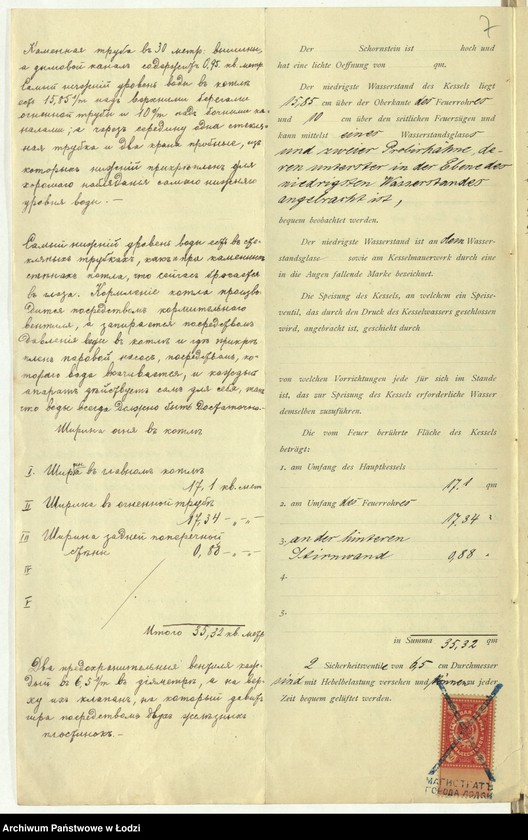 7
Каменная труба въ 30 метр. вышины,
а дымовой каналъ содержитъ 0,95 кв. метр.
Самый низкій уровень воды въ котлѣ
есть 15,85 с/m надъ верхними
огненной трубы и 10 с/m надъ бочными ка-
налами; а черезъ середину одна стеклян-
ная трубка и два крана пробные, изъ
которыхъ нижній прикрѣпленъ для
хорошаго наблюденія самаго нижняго
уровня воды. —
Самый нижній уровень воды есть въ сте-
клянныхъ трубкахъ, какъ и при каменныхъ
стѣнкахъ котла, что сейчасъ бросается
въ глаза. Кормленіе котла произво-
дится посредствомъ кормительнаго
вентиля, а запирается посредствомъ
давленія воды въ котлѣ и гдѣ прикрѣ-
пленъ паровой насосъ, посредствомъ ко-
тораго вода вкачивается, и каждый
аппаратъ дѣйствуетъ самъ для себя, такъ
что воды всегда должно быть достаточно.
Ширина огня въ котлѣ
I. Ширина въ главномъ котлѣ
17,1 кв. мет.
II Ширина въ огненной трубѣ
17,34 - „ - „ -
III Ширина задней поперечной
стѣны 0,88 - „ - „ -
IV
V
Итого 35,32 кв. метр.
Два предохранительныя вентиля каж-
дый въ 6,5 с/m въ діаметрѣ, а на вер-
ху ихъ клапанъ, на который давитъ
гира посредствомъ двухъ желѣзныхъ
пластинокъ. —
Der Schornstein ist hoch und
hat eine lichte Oeffnung von qm.
Der niedrigste Wasserstand des Kessels liegt
15,85 cm über der Oberkante des Feuerrohres
und 10 cm über den seitlichen Feuerzügen und
kann mittelst eines Wasserstandglases
und zweier Probirhähne, de-
ren unterster in der Ebene des
niedrigsten Wasserstandes
angebracht ist,
bequem beobachtet werden.
Der niedrigste Wasserstand ist an dem Wasser-
standsglase sowie am Kesselmauerwerk durch eine
in die Augen fallende Marke bezeichnet.
Die Speisung des Kessels, an welchem ein Speise-
ventil, das durch den Druck des Kesselwassers geschlossen
wird, angebracht ist, geschieht durch
von welchen Vorrichtungen jede für sich im Stande
ist, das zur Speisung des Kessels erforderliche Wasser
demselben zuzuführen.
Die vom Feuer berührte Fläche des Kessels
beträgt:
1. am Umfang des Hauptkessels
17,1 qm
2. am Umfang des Feuerrohres
17,34 "
3. an der hinteren
Stirnwand 0,88 "
4.
5.
in Summa 35,32 qm
2 Sicherheitsventile von 6,5 cm Durchmesser
sind mit Hebelbelastung versehen und können zu jeder
Zeit bequem gelüftet werden.
МАГИСТРАТЪ
ГОРОДА ЛОДЗИ
Archiwum Państwowe w Łodzi